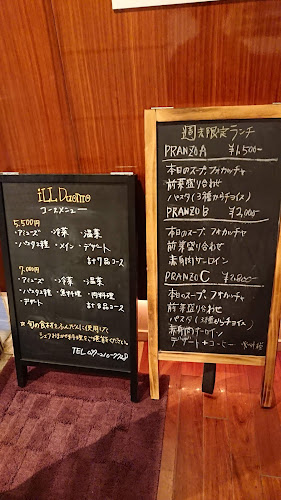 iLL Duomo
コースメニュー
5,500円
・アミューズ ・冷菜 ・温菜
・パスタ2種 ・メイン ・デザート
計7品コース
7,000円
・アミューズ ・冷菜 ・温菜
・パスタ2種 ・魚料理 ・肉料理
・デザート
計9品コース
※旬の食材をふんだんに使用した
シェフおまかせ料理をご堪能ください。
週末限定ランチ
PRANZO A ¥1,500-
本日のスープ、フォカッチャ
前菜盛り合わせ
パスタ(3種からチョイス)
PRANZO B ¥2,000-
本日のスープ、フォカッチャ
前菜盛り合わせ
赤身肉サーロイン
PRANZO C ¥2,800-
本日のスープ、フォカッチャ
前菜盛り合わせ
パスタ(3種からチョイス)
赤身肉サーロイン
デザート+コーヒー